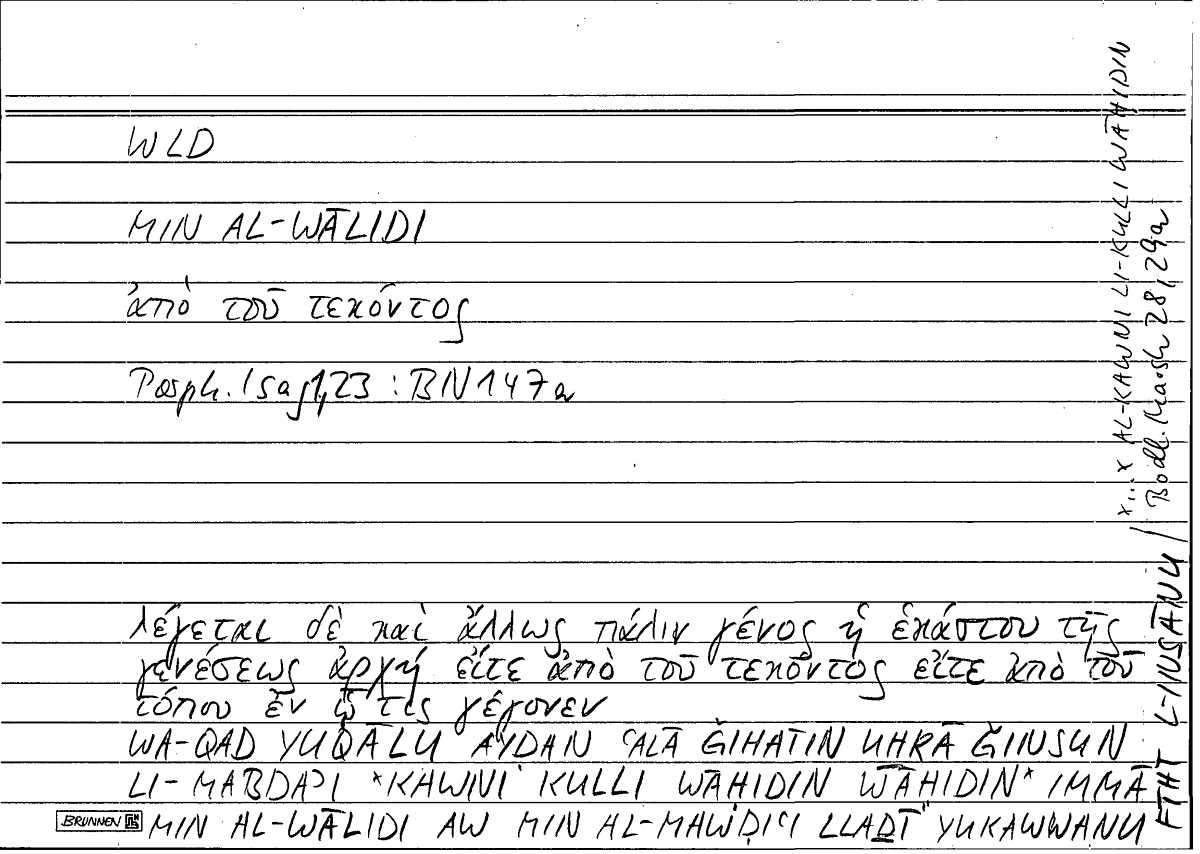 WLD
MIN AL-WĀLIDI
ἀπὸ τοῦ τεκόντος
Porph. Isag 1,23 : BN 147a
λέγεται δὲ καὶ ἄλλως πάλιν γένος ἡ ἑκάστου τῆς
γενέσεως ἀρχὴ εἴτε ἀπὸ τοῦ τεκόντος εἴτε ἀπὸ τοῦ
τόπου ἐν ᾧ τις γέγονεν
WA-QAD YUQĀLU AYḌAN ʿALĀ ǦIHATIN UḪRĀ ǦINSUN
LI-MABDAʾI *KAWNI KULLI WĀḤIDIN WĀḤIDIN* IMMĀ
MIN AL-WĀLIDI AW MIN AL-MAWḌIʿI LLAḎĪ YUKAWWANU
FĪHI L-INSĀNU / *...* AL-KAWNI LI-KULLI WĀḤIDIN
Bodl. Marsh 28, 29a
BRUNNEN